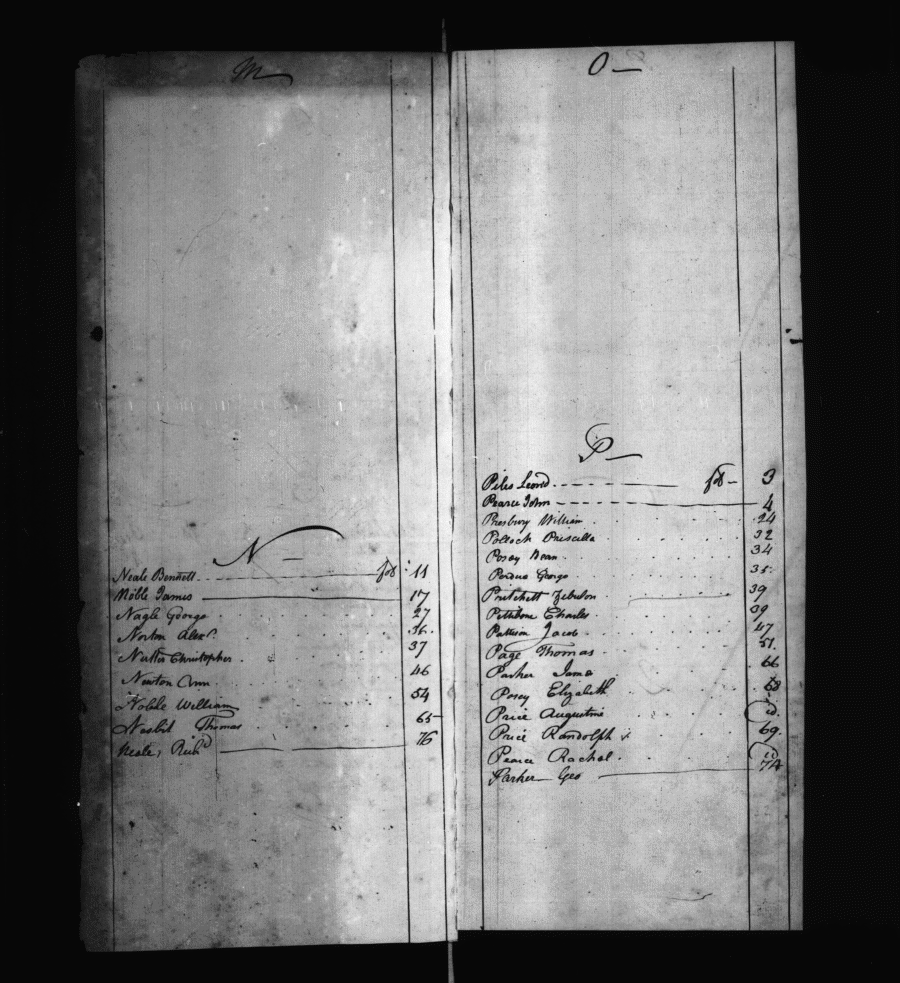 M
N
Neale Bennett fol 11
Noble James 17
Nagle George 27
Norton Alexr. 36
Nutter Christopher 37
Newton Ann 46
Noble William 54
Nesbit Thomas 65
Neale, Richd 76
O
P
Piles Leond fol 3
Pearce John 4
Presbury William 24
Pollock Priscilla 32
Posey Bean 34
Perdue George 35
Pritchett Zebulon 39
Pettibone Charles 39
Pattison Jacob 47
Page Thomas 51
Parker James 66
Posey Elizabeth
Price Augustine id.
Price Randolph 69
Pearce Rachel id
Parker Geo 74